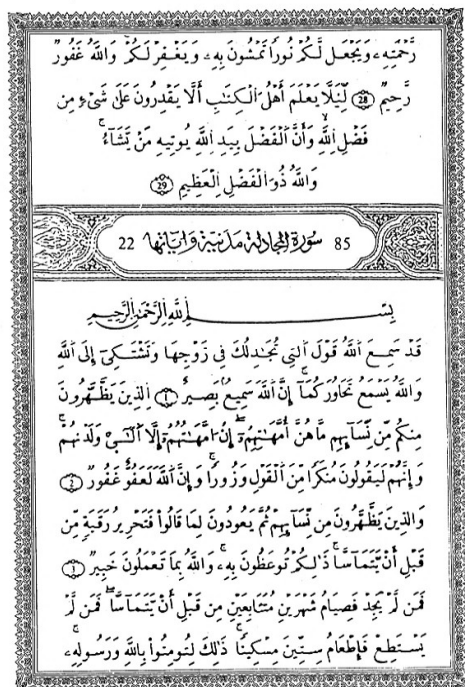 رَّحْمَتِهِۦ وَيَجْعَل لَّكُمْ نُورًا تَمْشُونَ بِهِۦ وَيَغْفِرْ لَكُمْ وَاللَّهُ غَفُورٌ
رَّحِيمٌ 28 لِّيَلَّا يَعْلَمَ أَهْلُ الْكِتَٰبِ أَلَّا يَقْدِرُونَ عَلَىٰ شَيْءٍ مِّن
فَضْلِ اللَّهِ وَأَنَّ الْفَضْلَ بِيَدِ اللَّهِ يُوتِيهِ مَنْ يَّشَآءُ
وَاللَّهُ ذُو الْفَضْلِ الْعَظِيمِ 29
85 سورة المجادلة مدنية وءاياتها 22
بِسْمِ اللَّهِ الرَّحْمَٰنِ الرَّحِيمِ
قَدْ سَمِعَ اللَّهُ قَوْلَ الَّتِي تُجَٰدِلُكَ فِي زَوْجِهَا وَتَشْتَكِي إِلَى اللَّهِ
وَاللَّهُ يَسْمَعُ تَحَاوُرَكُمَآ إِنَّ اللَّهَ سَمِيعٌ بَصِيرٌ 1 الذِينَ يَظَّهَّرُونَ
مِنكُم مِّن نِّسَآئِهِم مَّا هُنَّ أُمَّهَٰتِهِمْ إِنْ أُمَّهَٰتُهُمْ إِلَّا الَّٰٓئِي وَلَدْنَهُمْ
وَإِنَّهُمْ لَيَقُولُونَ مُنكَرًا مِّنَ الْقَوْلِ وَزُورًا وَإِنَّ اللَّهَ لَعَفُوٌّ غَفُورٌ 2
وَالذِينَ يَظَّهَّرُونَ مِن نِّسَآئِهِمْ ثُمَّ يَعُودُونَ لِمَا قَالُوا فَتَحْرِيرُ رَقَبَةٍ مِّن
قَبْلِ أَنْ يَّتَمَآسَّا ذَٰلِكُمْ تُوعَظُونَ بِهِۦ وَاللَّهُ بِمَا تَعْمَلُونَ خَبِيرٌ 3
فَمَن لَّمْ يَجِدْ فَصِيَامُ شَهْرَيْنِ مُتَتَابِعَيْنِ مِن قَبْلِ أَنْ يَّتَمَآسَّا فَمَن لَّمْ
يَسْتَطِعْ فَإِطْعَامُ سِتِّينَ مِسْكِينًا ذَٰلِكَ لِتُومِنُوا بِاللَّهِ وَرَسُولِهِۦ